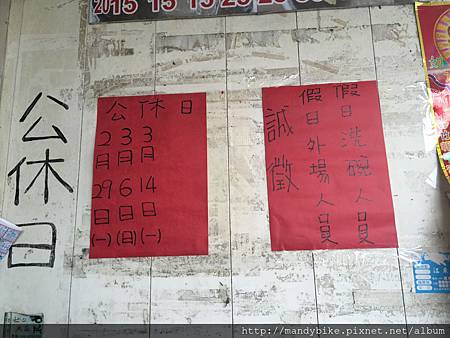 2015
公休日
公休日
2月29日(一)
3月6日(日)
3月14日(一)
假日洗碗人員
假日外場人員
誠徵
http://mandybike.pixnet.net/album